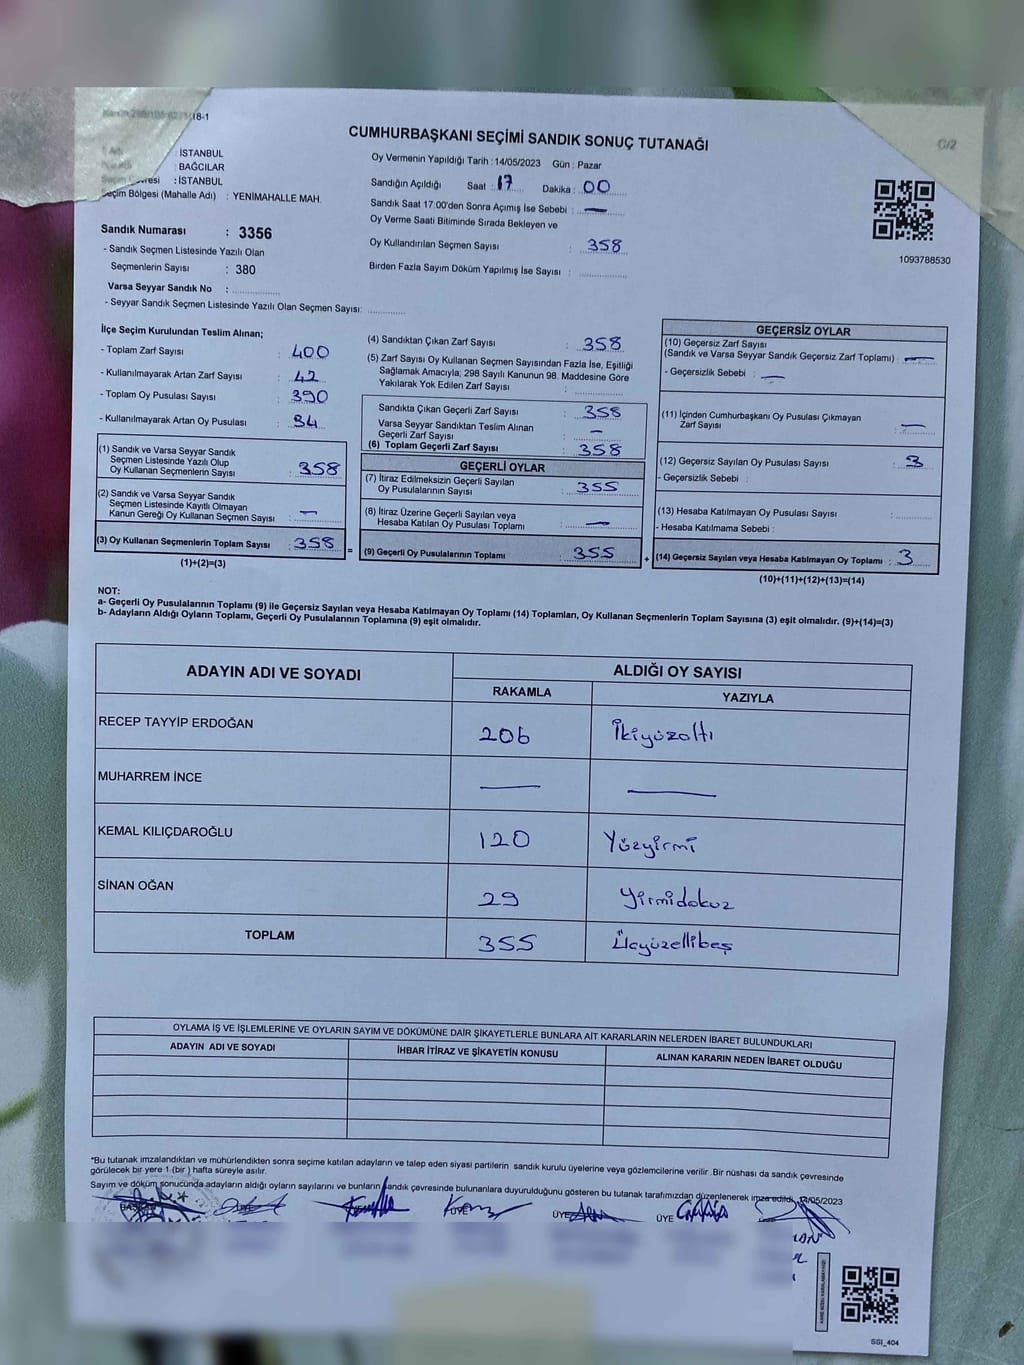 18-1
CUMHURBAŞKANI SEÇİMİ SANDIK SONUÇ TUTANAĞI
C/2
: İSTANBUL
: BAĞCILAR
: İSTANBUL
Seçim Bölgesi (Mahalle Adı) : YENİMAHALLE MAH.
Oy Vermenin Yapıldığı Tarih : 14/05/2023 Gün : Pazar
Sandığın Açıldığı Saat : 17 Dakika : 00
Sandık Saat 17:00'den Sonra Açımış İse Sebebi : —
Oy Verme Saati Bitiminde Sırada Bekleyen ve
Oy Kullandırılan Seçmen Sayısı : 358
Birden Fazla Sayım Döküm Yapılmış İse Sayısı :
1093788530
Sandık Numarası : 3356
- Sandık Seçmen Listesinde Yazılı Olan
Seçmenlerin Sayısı : 380
Varsa Seyyar Sandık No :
- Seyyar Sandık Seçmen Listesinde Yazılı Olan Seçmen Sayısı:
İlçe Seçim Kurulundan Teslim Alınan;
- Toplam Zarf Sayısı : 400
- Kullanılmayarak Artan Zarf Sayısı : 42
- Toplam Oy Pusulası Sayısı : 390
- Kullanılmayarak Artan Oy Pusulası :
(1) Sandık ve Varsa Seyyar Sandık
Seçmen Listesinde Yazılı Olup
Oy Kullanan Seçmenlerin Sayısı : 358
(2) Sandık ve Varsa Seyyar Sandık
Seçmen Listesinde Kayıtlı Olmayan
Kanun Gereği Oy Kullanan Seçmen Sayısı : —
(3) Oy Kullanan Seçmenlerin Toplam Sayısı : 358
(1)+(2)=(3)
=
(4) Sandıktan Çıkan Zarf Sayısı : 358
(5) Zarf Sayısı Oy Kullanan Seçmen Sayısından Fazla İse, Eşitliği
Sağlamak Amacıyla; 298 Sayılı Kanunun 98. Maddesine Göre
Yakılarak Yok Edilen Zarf Sayısı :
Sandıkta Çıkan Geçerli Zarf Sayısı : 358
Varsa Seyyar Sandıktan Teslim Alınan
Geçerli Zarf Sayısı : —
(6) Toplam Geçerli Zarf Sayısı : 358
GEÇERLİ OYLAR
(7) İtiraz Edilmeksizin Geçerli Sayılan
Oy Pusulalarının Sayısı : 355
(8) İtiraz Üzerine Geçerli Sayılan veya
Hesaba Katılan Oy Pusulası Toplamı : —
(9) Geçerli Oy Pusulalarının Toplamı : 355
+
GEÇERSİZ OYLAR
(10) Geçersiz Zarf Sayısı
(Sandık ve Varsa Seyyar Sandık Geçersiz Zarf Toplamı) : —
- Geçersizlik Sebebi : —
(11) İçinden Cumhurbaşkanı Oy Pusulası Çıkmayan
Zarf Sayısı : —
(12) Geçersiz Sayılan Oy Pusulası Sayısı : 3
- Geçersizlik Sebebi :
(13) Hesaba Katılmayan Oy Pusulası Sayısı :
- Hesaba Katılmama Sebebi :
(14) Geçersiz Sayılan veya Hesaba Katılmayan Oy Toplamı : 3
(10)+(11)+(12)+(13)=(14)
NOT:
a- Geçerli Oy Pusulalarının Toplamı (9) ile Geçersiz Sayılan veya Hesaba Katılmayan Oy Toplamı (14) Toplamları, Oy Kullanan Seçmenlerin Toplam Sayısına (3) eşit olmalıdır. (9)+(14)=(3)
b- Adayların Aldığı Oyların Toplamı, Geçerli Oy Pusulalarının Toplamına (9) eşit olmalıdır.
ADAYIN ADI VE SOYADI ALDIĞI OY SAYISI
RAKAMLA YAZIYLA
RECEP TAYYİP ERDOĞAN 206 İkiyüzaltı
MUHARREM İNCE — —
KEMAL KILIÇDAROĞLU 120 Yüzyirmi
SİNAN OĞAN 29 Yirmidokuz
TOPLAM 355 Üçyüzellibeş
OYLAMA İŞ VE İŞLEMLERİNE VE OYLARIN SAYIM VE DÖKÜMÜNE DAİR ŞİKAYETLERLE BUNLARA AİT KARARLARIN NELERDEN İBARET BULUNDUKLARI
ADAYIN ADI VE SOYADI İHBAR İTİRAZ VE ŞİKAYETİN KONUSU ALINAN KARARIN NEDEN İBARET OLDUĞU
*Bu tutanak imzalandıktan ve mühürlendikten sonra seçime katılan adayların ve talep eden siyasi partilerin sandık kurulu üyelerine veya gözlemcilerine verilir .Bir nüshası da sandık çevresinde
görülecek bir yere 1 (bir ) hafta süreyle asılır.
Sayım ve döküm sonucunda adayların aldığı oyların sayılarını ve bunların sandık çevresinde bulunanlara duyurulduğunu gösteren bu tutanak tarafımızdan düzenlenerek imza edildi. 14/05/2023
BAŞKAN ÜYE ÜYE ÜYE
SSI_404